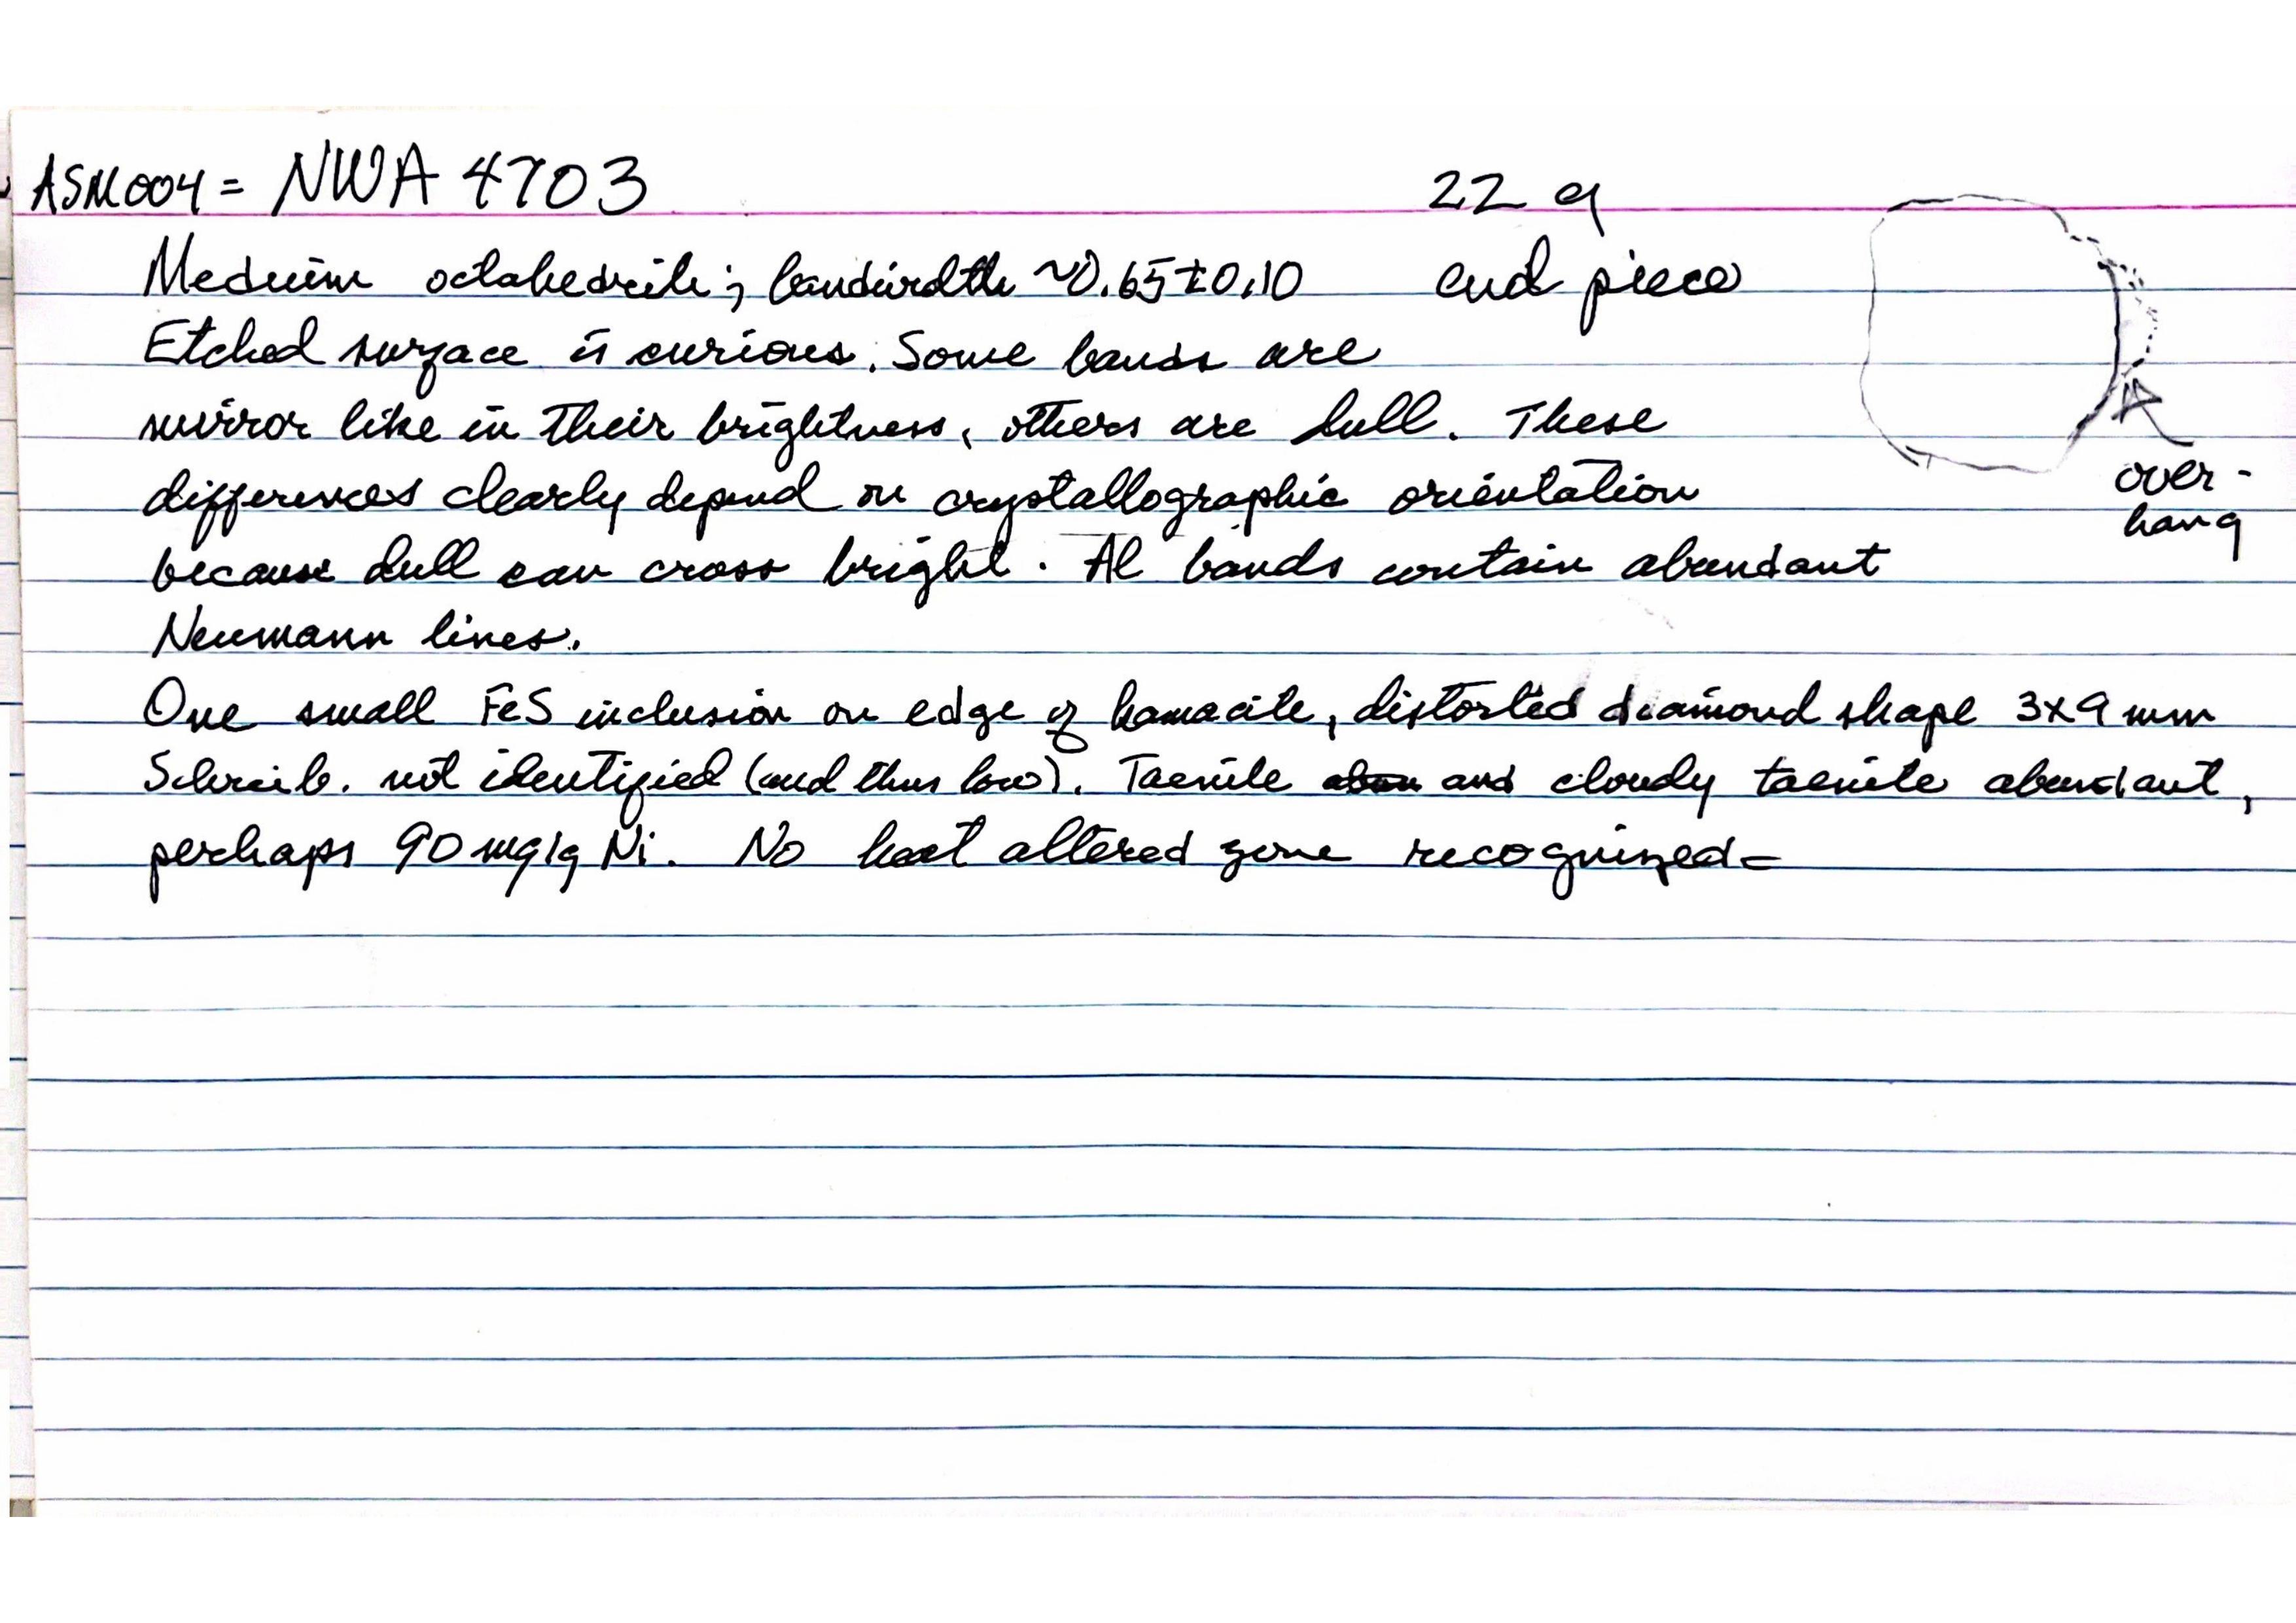 ASM004 = NWA 4703 22 g
Medium octahedrite; bandwidth ~0.65±0.10 end piece
Etched surface is curious. Some bands are
mirror like in their brightness, others are dull. These
differences clearly depend on crystallographic orientation
over-
hang
because dull can cross bright. Al bands contain abundant
Neumann lines.
One small FeS inclusion on edge of kamacite, distorted diamond shape 3x9 mm
Schreib. not identified (and thus low). Taenite abun and cloudy taenite abundant,
perhaps 90 mg/g Ni. No heat altered zone recognized-